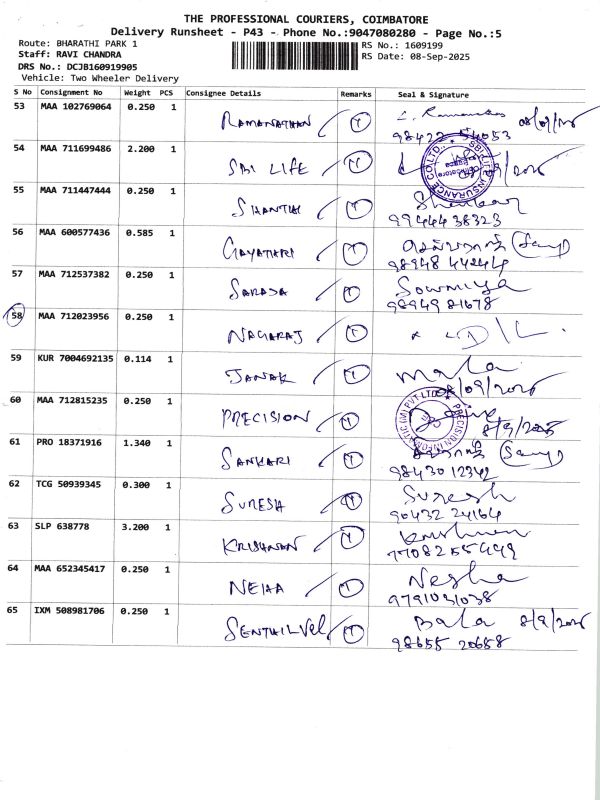 THE PROFESSIONAL COURIERS, COIMBATORE
Delivery Runsheet - P43 - Phone No.:9047080280 - Page No.:5
Route: BHARATHI PARK 1
Staff: RAVI CHANDRA
DRS No.: DCJB160919905
Vehicle: Two Wheeler Delivery
RS No.: 1609199
RS Date: 08-Sep-2025
S No Consignment No Weight PCS Consignee Details Remarks Seal & Signature
53 MAA 102769064 0.250 1 RAMANATHAN Y 08/09/25
98422 54053
54 MAA 711699486 2.200 1 SBI LIFE Y
SBI LIFE INSURANCE CO.LTD.
55 MAA 711447444 0.250 1 SHANTHI Y Shankar
99444 38323
56 MAA 600577436 0.585 1 GAYATHRI Y
98948 44244
57 MAA 712537382 0.250 1 SARADA Y Sowmiya
98949 81678
58 MAA 712023956 0.250 1 NAGARAJ Y D/L.
59 KUR 7004692135 0.114 1 JANAK Y Mala
08/09/2025
60 MAA 712815235 0.250 1 PRECISION Y 8/9/2025
PRECISION INFORMATIC (M) PVT LTD
61 PRO 18371916 1.340 1 SANKARI Y
98430 12342
62 TCG 50939345 0.300 1 SURESH Y Suresh
90432 24164
63 SLP 638778 3.200 1 KRISHNAN Y Krishnan
7708255449
64 MAA 652345417 0.250 1 NEHA Y Negha
9791031038
65 IXM 508981706 0.250 1 SENTHILVEL Y Bala 8/9/25
98655 20658